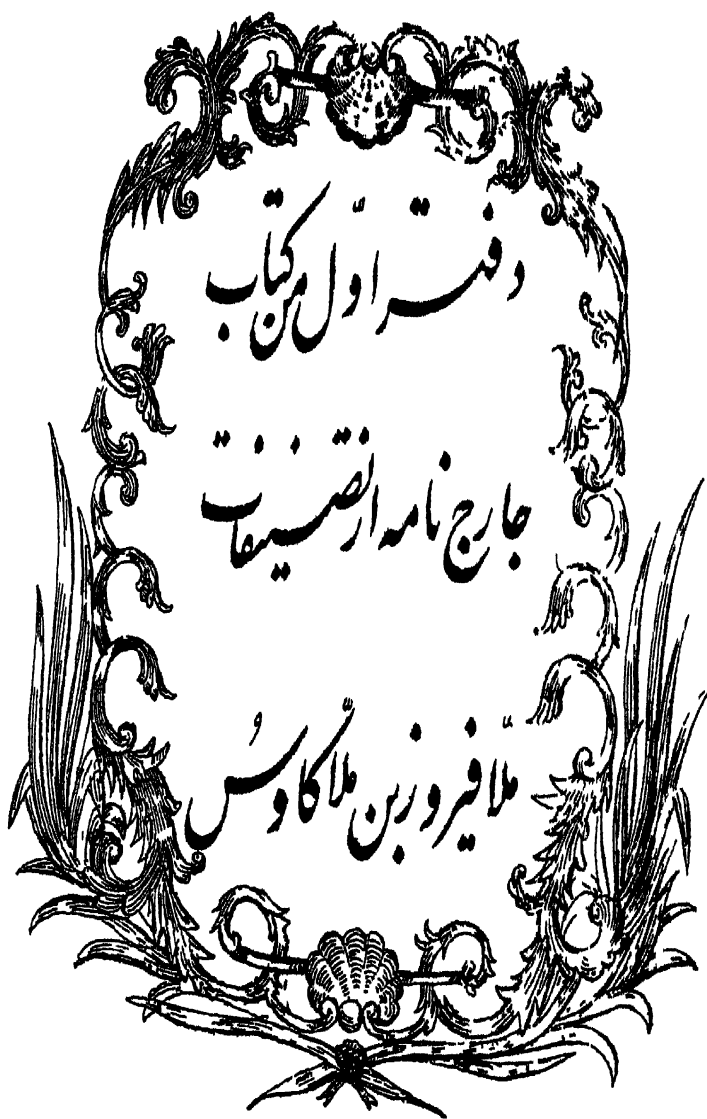 دفتر اوّل من کتاب
جارج نامه از تصنیفات
ملّا فیروز بن ملّا کاوسُ